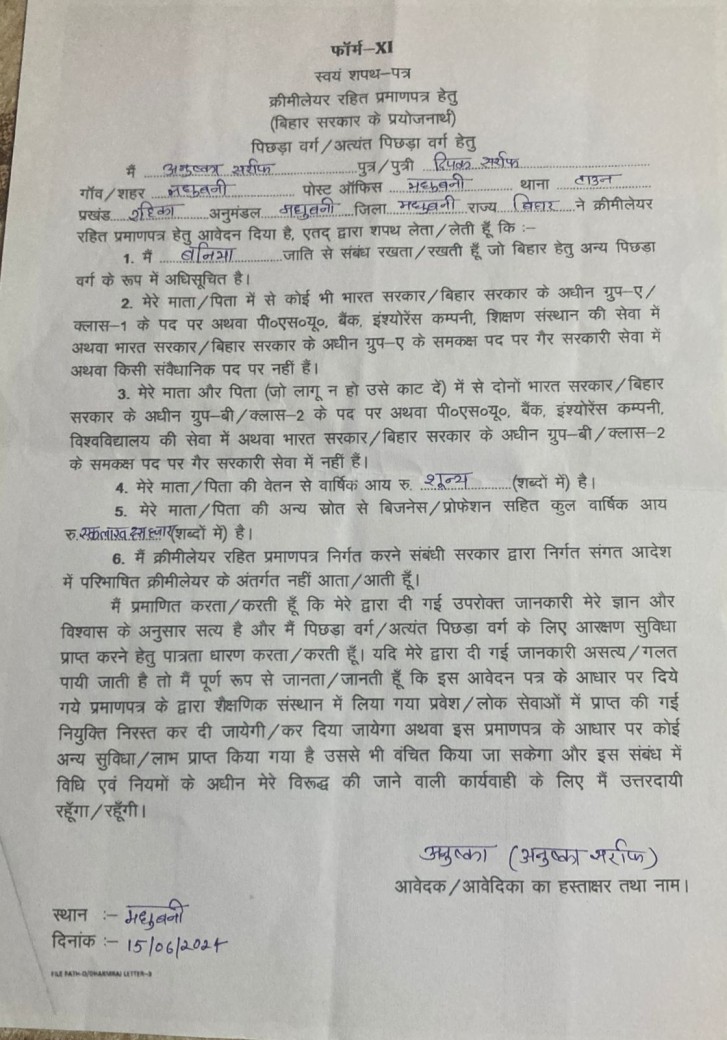 फॉर्म–XI
स्वयं शपथ–पत्र
क्रीमीलेयर रहित प्रमाणपत्र हेतु
(बिहार सरकार के प्रयोजनार्थ)
पिछड़ा वर्ग/अत्यंत पिछड़ा वर्ग हेतु
मैं अनुष्का सर्राफ पुत्र/पुत्री दिपक सर्राफ
गॉव/शहर मधुबनी पोस्ट ऑफिस मधुबनी थाना टाउन
प्रखंड रहिका अनुमंडल मधुबनी जिला मधुबनी राज्य बिहार ने क्रीमीलेयर
रहित प्रमाणपत्र हेतु आवेदन दिया है, एतद् द्वारा शपथ लेता/लेती हूँ कि :–
1. मैं बनिया जाति से संबंध रखता/रखती हूँ जो बिहार हेतु अन्य पिछड़ा
वर्ग के रूप में अधिसूचित है।
2. मेरे माता/पिता में से कोई भी भारत सरकार/बिहार सरकार के अधीन ग्रुप–ए/
क्लास–1 के पद पर अथवा पी०एस०यू०, बैंक, इंश्योरेंस कम्पनी, शिक्षण संस्थान की सेवा में
अथवा भारत सरकार/बिहार सरकार के अधीन ग्रुप–ए के समकक्ष पद पर गैर सरकारी सेवा में
अथवा किसी संवैधानिक पद पर नहीं हैं।
3. मेरे माता और पिता (जो लागू न हो उसे काट दें) में से दोनों भारत सरकार/बिहार
सरकार के अधीन ग्रुप–बी/क्लास–2 के पद पर अथवा पी०एस०यू०, बैंक, इंश्योरेंस कम्पनी,
विश्वविद्यालय की सेवा में अथवा भारत सरकार/बिहार सरकार के अधीन ग्रुप–बी/क्लास–2
के समकक्ष पद पर गैर सरकारी सेवा में नहीं हैं।
4. मेरे माता/पिता की वेतन से वार्षिक आय रु. शून्य (शब्दों में) है।
5. मेरे माता/पिता की अन्य स्रोत से बिजनेस/प्रोफेशन सहित कुल वार्षिक आय
रु. (शब्दों में) है।
6. मैं क्रीमीलेयर रहित प्रमाणपत्र निर्गत करने संबंधी सरकार द्वारा निर्गत संगत आदेश
में परिभाषित क्रीमीलेयर के अंतर्गत नहीं आता/आती हूँ।
मैं प्रमाणित करता/करती हूँ कि मेरे द्वारा दी गई उपरोक्त जानकारी मेरे ज्ञान और
विश्वास के अनुसार सत्य है और मैं पिछड़ा वर्ग/अत्यंत पिछड़ा वर्ग के लिए आरक्षण सुविधा
प्राप्त करने हेतु पात्रता धारण करता/करती हूँ। यदि मेरे द्वारा दी गई जानकारी असत्य/गलत
पायी जाती है तो मैं पूर्ण रूप से जानता/जानती हूँ कि इस आवेदन पत्र के आधार पर दिये
गये प्रमाणपत्र के द्वारा शैक्षणिक संस्थान में लिया गया प्रवेश/लोक सेवाओं में प्राप्त की गई
नियुक्ति निरस्त कर दी जायेगी/कर दिया जायेगा अथवा इस प्रमाणपत्र के आधार पर कोई
अन्य सुविधा/लाभ प्राप्त किया गया है उससे भी वंचित किया जा सकेगा और इस संबंध में
विधि एवं नियमों के अधीन मेरे विरूद्ध की जाने वाली कार्यवाही के लिए मैं उत्तरदायी
रहूँगा/रहूँगी।
अनुष्का (अनुष्का सर्राफ)
आवेदक/आवेदिका का हस्ताक्षर तथा नाम।
स्थान :– मधुबनी
दिनांक :– 15/06/2024
FILE PATH-D/DHARMRAJ LETTER-2